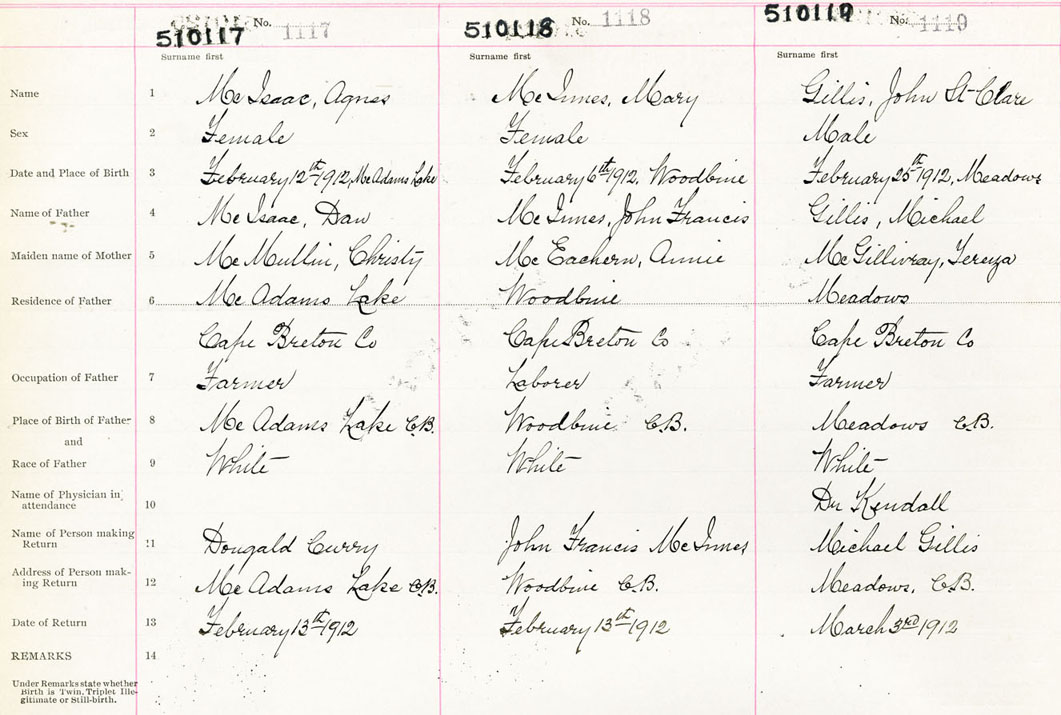 No. 1117 No. 1118 No. 1119
510117 510118 510119
Surname first Surname first Surname first
Name 1 Mc Isaac, Agnes Mc Innes, Mary Gillis, John St Clare
Sex 2 Female Female Male
Date and Place of Birth 3 February 12th 1912, Mc Adams Lake February 6th 1912, Woodbine February 25th 1912, Meadows
Name of Father 4 Mc Isaac, Dan Mc Innes, John Francis Gillis, Michael
Maiden name of Mother 5 Mc Mullin, Christy Mc Eachern, Annie Mc Gillivray, Tereza
Residence of Father 6 Mc Adams Lake Woodbine Meadows
Cape Breton Co Cape Breton Co Cape Breton Co
Occupation of Father 7 Farmer Laborer Farmer
Place of Birth of Father 8 Mc Adams Lake C.B. Woodbine C.B. Meadows C.B.
and
Race of Father 9 White White White
Name of Physician in attendance 10 Dr Kendall
Name of Person making Return 11 Dougald Curry John Francis Mc Innes Michael Gillis
Address of Person mak-
ing Return 12 Mc Adams Lake C.B. Woodbine C.B. Meadows, C.B.
Date of Return 13 February 13th 1912 February 13th 1912 March 3rd 1912
REMARKS 14
Under Remarks state whether
Birth is Twin, Triplet Ille-
gitimate or Still-birth.